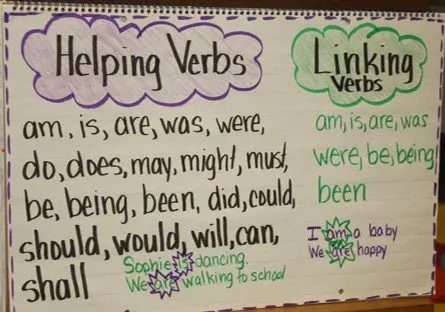 Helping Verbs
am, is, are, was, were,
do, does, may, might, must,
be, being, been, did, could,
should, would, will, can,
shall
Sophie is dancing.
We are walking to school
Linking
Verbs
am, is, are, was
were, be, being
been
I am a baby
We are happy